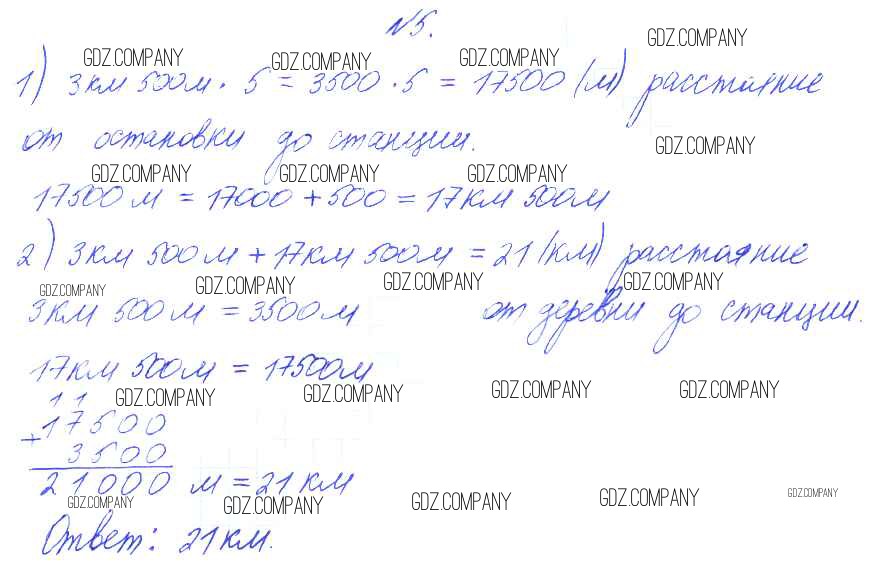 №5.
1) 3км 500м · 5 = 3500 · 5 = 17500 (м) расстояние
от остановки до станции.
17500 м = 17000 + 500 = 17км 500м
2) 3км 500м + 17км 500м = 21 (км) расстояние
3км 500м = 3500м от деревни до станции.
17км 500м = 17500м
1 1
17500
+ 3500
21000 м = 21 км
Ответ: 21км.
GDZ.COMPANY
GDZ.COMPANY GDZ.COMPANY GDZ.COMPANY
GDZ.COMPANY
GDZ.COMPANY GDZ.COMPANY GDZ.COMPANY
GDZ.COMPANY GDZ.COMPANY GDZ.COMPANY GDZ.COMPANY
GDZ.COMPANY GDZ.COMPANY GDZ.COMPANY GDZ.COMPANY
GDZ.COMPANY GDZ.COMPANY GDZ.COMPANY GDZ.COMPANY GDZ.COMPANY